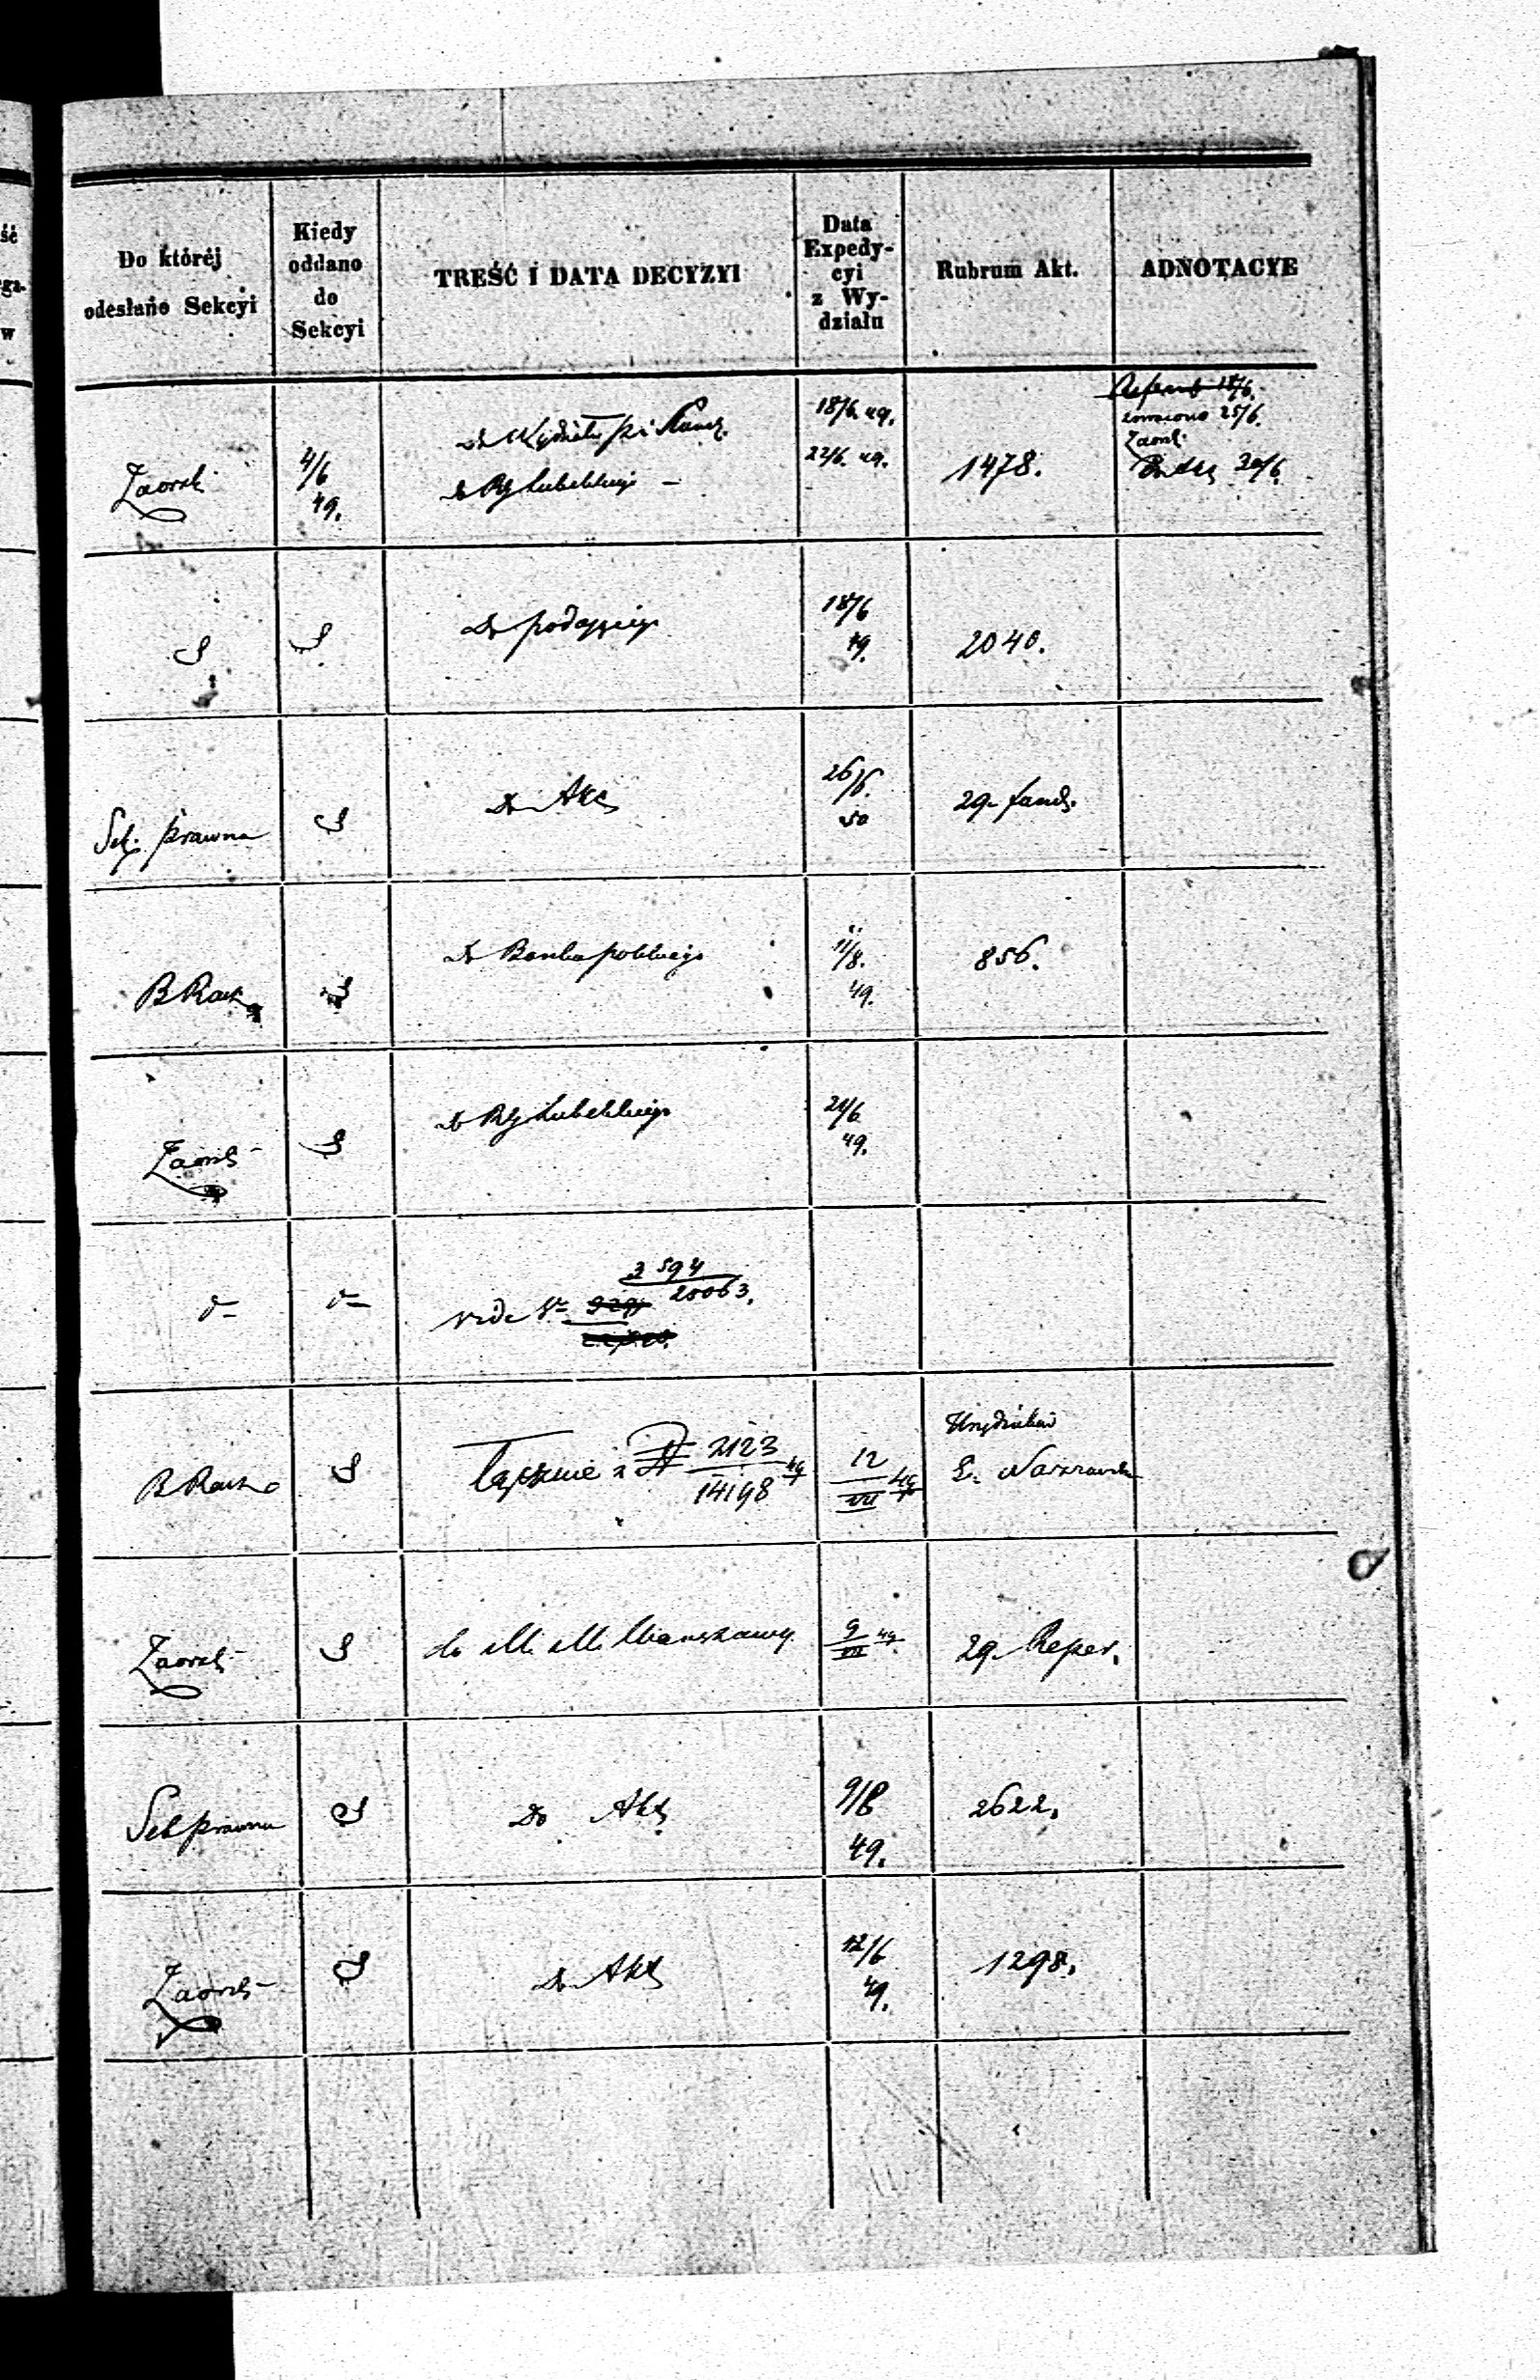 Do któréj
odesłano Sekcyi
Kiedy
oddano
do
Sekcyi
TREŚĆ I DATA DECYZYI
Data
Expedy-
cyi
z Wy-
działu
Rubrum Akt.
ADNOTACYE
Zaorsk
4/6
49.
do Wydziału
do Rz Lubelskiego
18/6 49.
22/6. 49.
1478.
18/6.
zwrócono 25/6.
Zaorsk
30/6
do podającego
18/6
49.
2040.
Sek. prawna
Do Akt
26/6.
50
29.
B Rach
do Banku polskiego
11/8.
49.
856.
Zaorsk
do Rz Lubelskiego
21/6
49.
vide Nr
3594
20063.
B Rach
Łącznie z N 2123
14198 49
12
VII 49
Urzędników
Zaorsk
do M. M. Warszawy
9
VII 49
29. Reper.
Sek prawna
Do Akt
9/8
49.
2622.
Zaorsk
Do Akt
12/6
49.
1298.